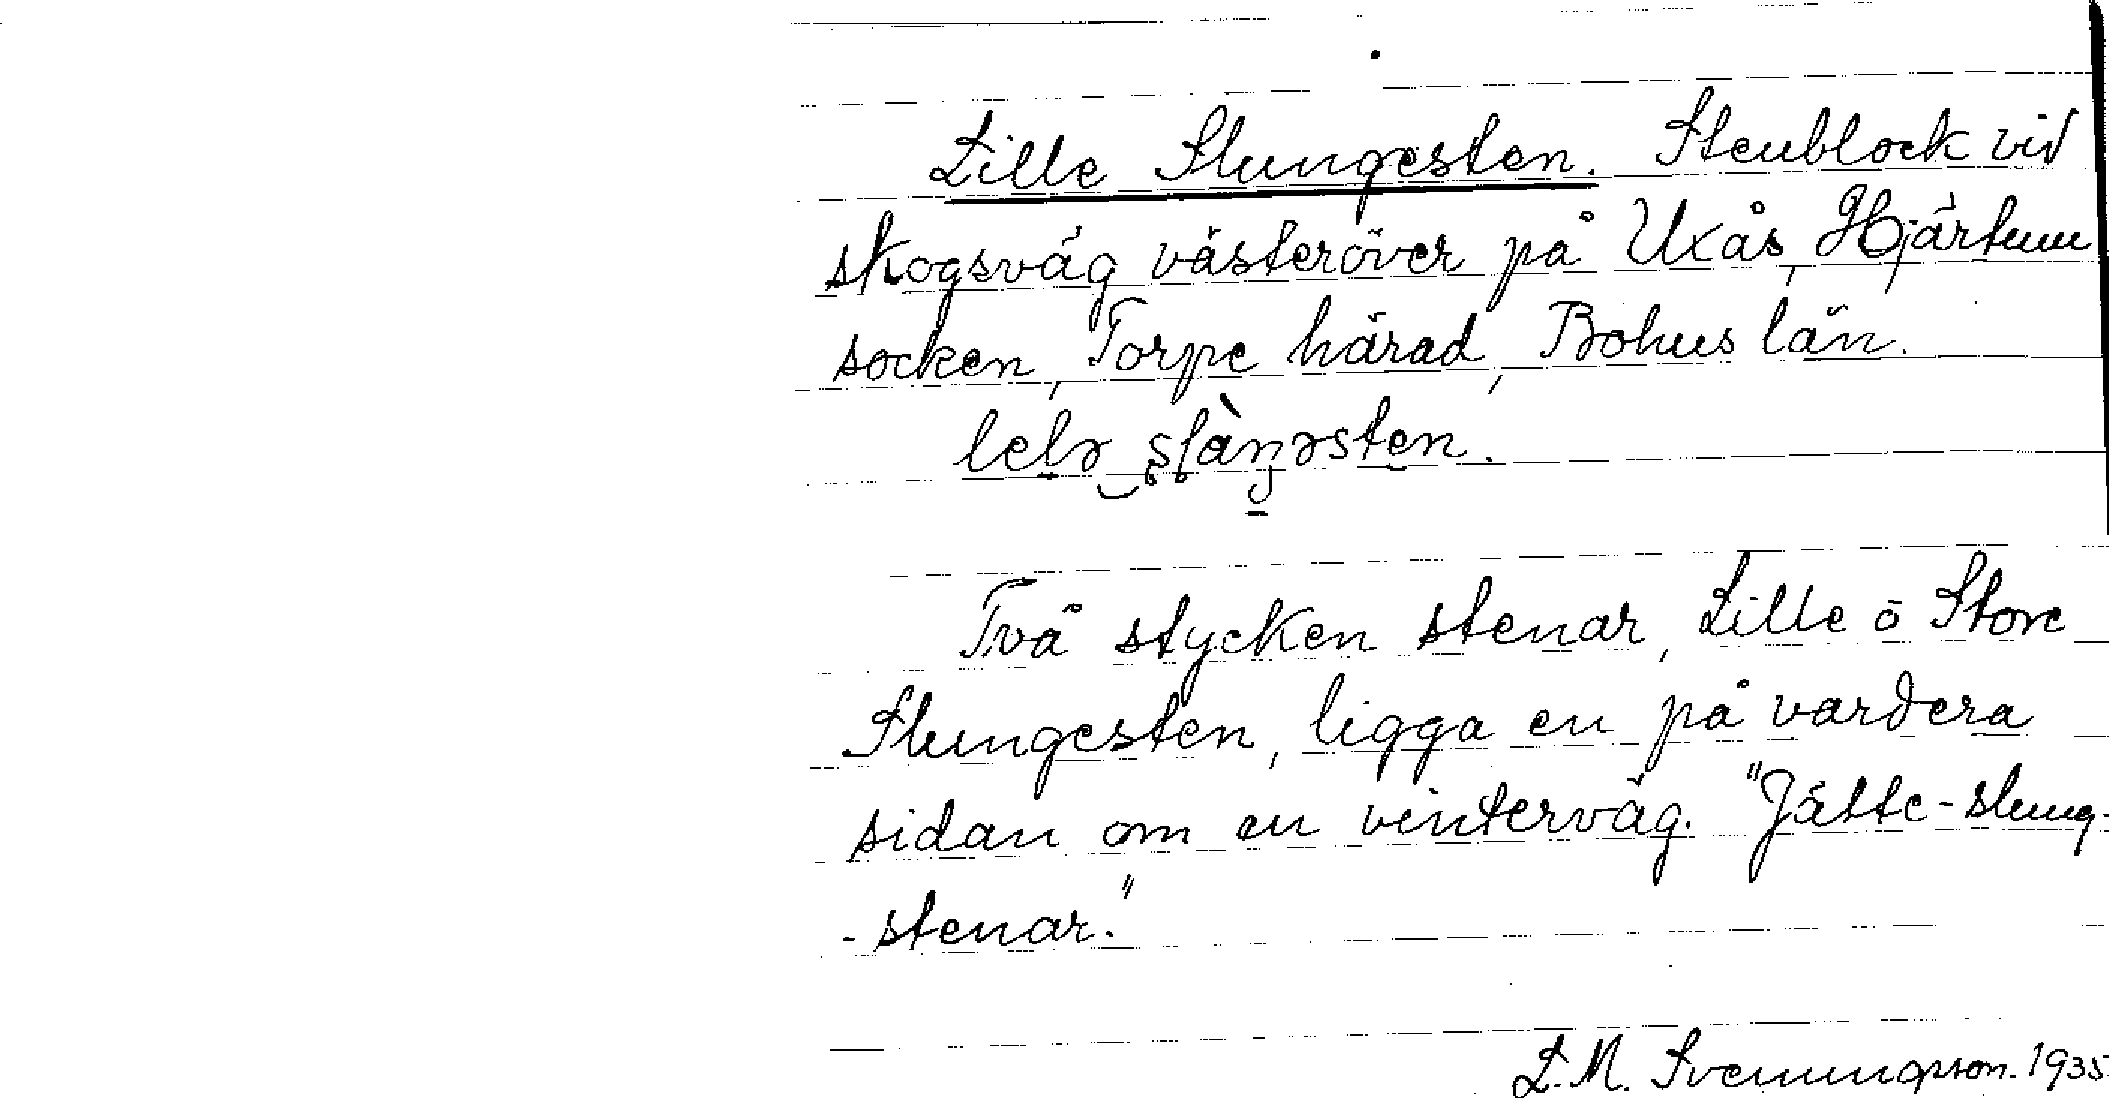 Lille Slungesten. Stenblock vid
skogsväg västeröver på Uxås, Hjärtum
socken, Torpe härad, Bohus län.
Två stycken stenar, Lille ö Store
Slungesten, ligga en på vardera
sidan om en vinterväg. "Jätte-slung-
-stenar."
L. M. Svenungsson. 1935